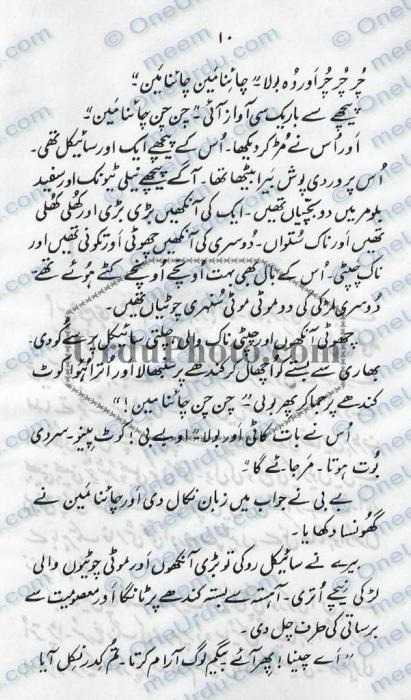 ۱۰
چُر چُر چُر اَور وُہ بولا۔ "چائنا مَین چائنا مَین"
پیچھے سے باریک سی آواز آئی۔ "چن چن چائنا مَین"
اَور اُس نے مُڑ کر دیکھا۔ اُس کے پیچھے ایک اَور سائیکل تھی۔
اُس پر وردی پوش بَیرا بیٹھا تھا۔ آگے پیچھے نیلی ٹیونک اَور سفید
بلومر میں دو بچیاں تھیں۔ ایک کی آنکھیں بڑی بڑی اَور کھُلی کھُلی
تھیں اَور ناک سُتواں۔ دُوسری کی آنکھیں چھوٹی اَور تکونی تھیں اَور
ناک چپٹی۔ اُس کے بال بھی بہت اُونچے اُونچے کٹے ہُوئے تھے۔
دُوسری لڑکی کی دو موٹی موٹی سُنہری چوٹیاں تھیں۔
چھوٹی آنکھوں اَور چپٹی ناک والی چلتی سائیکل پر سے کُودی۔
بھاری سے بستے کو اُچھال کر کندھے پر سنبھالا اَور اُترا ہُوا کوٹ
کندھے پر جما کر پھر بولی۔ "چن چن چائنا مین!"
اُس نے بات کاٹی اَور بولا۔ "او بے بی! کوٹ پہنو۔ سردی
بُوت ہوتا۔ مَر جائے گا"
بے بی نے جواب میں زبان نکال دی اَور چائنا مَین نے
گھُونسا دکھایا۔
بیرے نے سائیکل روکی تو بڑی آنکھوں اَور موٹی چوٹیوں والی
لڑکی نیچے اُتری۔ آہستہ سے بستہ کندھے پر ٹانگا اَور معصومیت سے
برساتی کی طرف چل دی۔
"اَے چینا! پھر آئے بیگم لوگ آرام کرتا۔ تُم کدر نِکل آیا
OneUrdu.com
meem
UrduPhoto.com